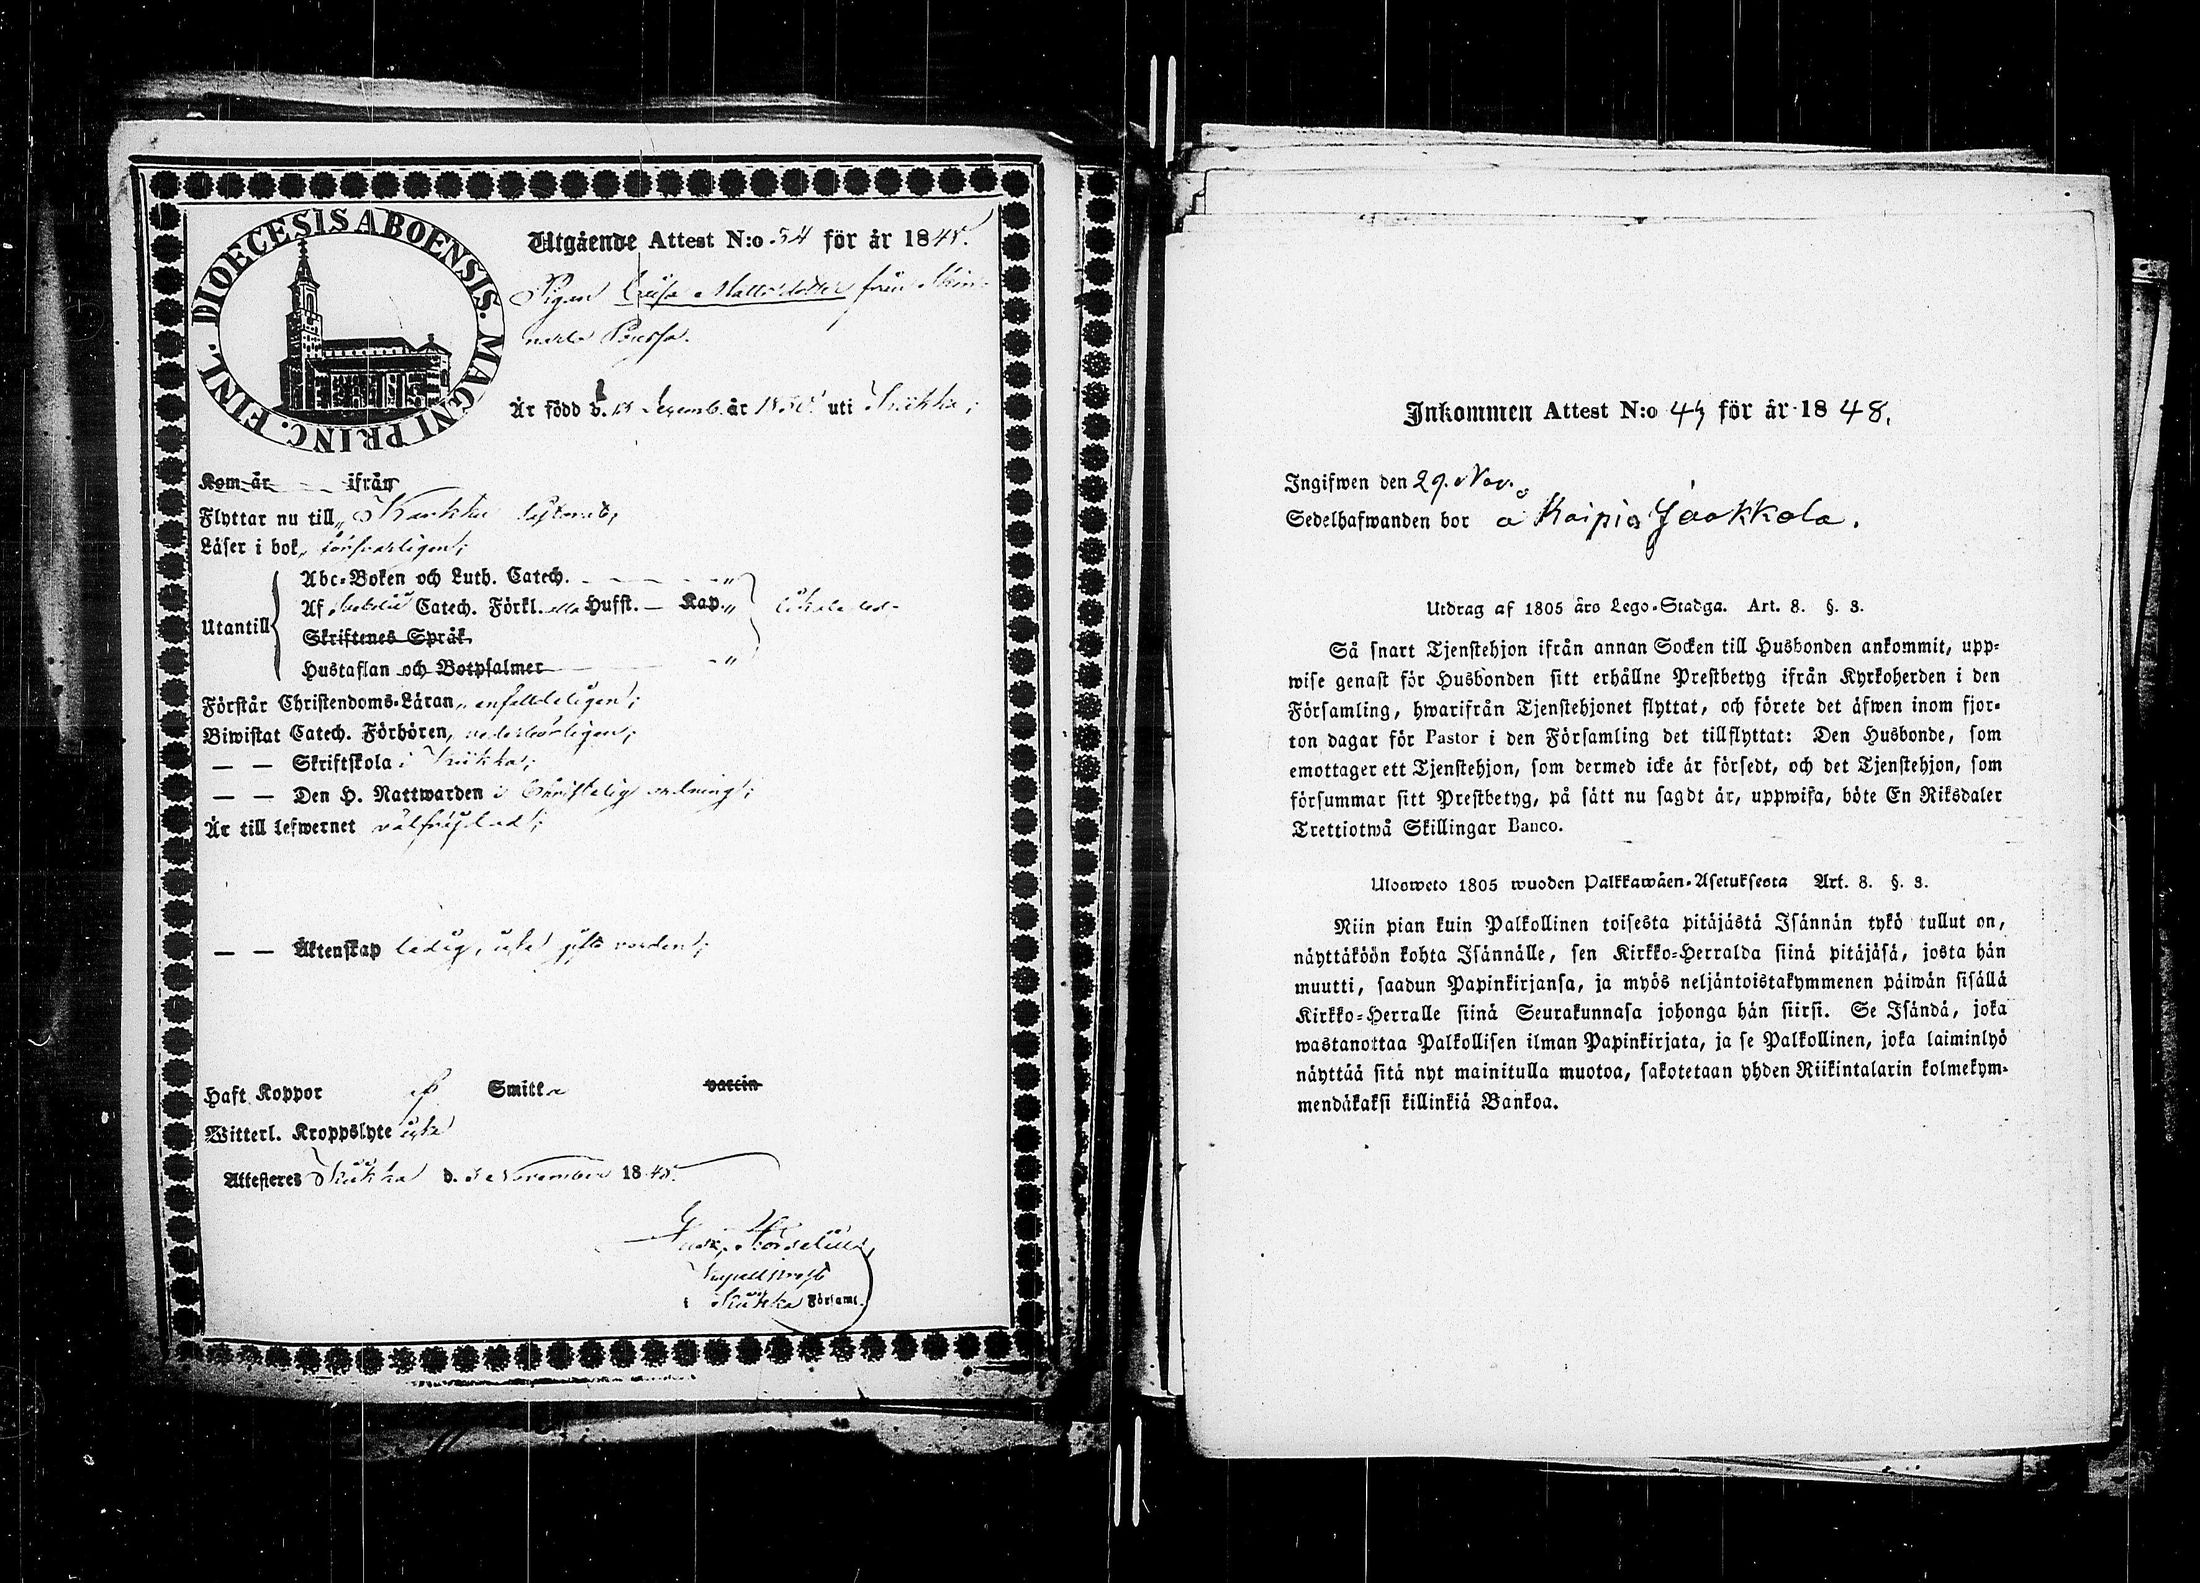 DIOECESIS ABOENSIS. MAGNI PRINC. FINL.
Utgående Attest N:o 54 för år 1848.
Pigan Caisa Mattsdotter från Min-
Är född d. 13 Decemb. år uti Kiikka;
Kom år ifrån
Flyttar nu till Karkku
Läser i bok, försvarligen;
Utantill
Abc-Boken och Luth. Catech.
Af Catech. Förkl. Husst. — Kap.
Skriftenes Språk
Hustaflan och Botpsalmer
Förstår Christendoms-Läran, enfaldeligen;
Biwistat Catech. Förhören, vederbörligen;
— — Skriftskola i Kiikka;
— — Den H. Nattwarden i Christelig ordning;
Är till lefwernet välfrejdad;
— — Äktenskap ledig, icke gift vorden;
Haft Koppor ej Smitt vaccin
Witterl. Kroppslyte icke
Attesteres Kiikka d. November 1848.
i Kiikka Församl.
Inkommen Attest N:o 47 för år 1848.
Ingifwen den 29. Nov.
Sedelhafwanden bor å Kaipio Jaakkola.
Utdrag af 1805 års Lego-Stadga. Art. 8. §. 3.
Så snart Tjenstehjon ifrån annan Socken till Husbonden ankommit, upp-
wise genast för Husbonden sitt erhållne Prestbetyg ifrån Kyrkoherden i den
Församling, hwarifrån Tjenstehjonet flyttat, och förete det äfwen inom fjor-
ton dagar för Pastor i den Församling det tillflyttat: Den Husbonde, som
emottager ett Tjenstehjon, som dermed icke är försedt, och det Tjenstehjon, som
försummar sitt Prestbetyg, på sätt nu sagdt är, uppwisa, böte En Riksdaler
Trettiotwå Skillingar Banco.
Ulosweto 1805 wuoden Palkkawäen-Asetuksesta Art. 8. §. 3.
Niin pian kuin Palkollinen toisesta pitäjästä Isännän tykö tullut on,
näyttäköön kohta Isännälle, sen Kirkko-Herralda siinä pitäjäsä, josta hän
muutti, saadun Papinkirjansa, ja myös neljäntoistakymmenen päiwän sisällä
Kirkko-Herralle siinä Seurakunnasa johonga hän siirsi. Se Isändä, joka
wastanottaa Palkollisen ilman Papinkirjata, ja se Palkollinen, joka laiminlyö
näyttää sitä nyt mainitulla muotoa, sakotetaan yhden Riikintalarin kolmekym-
mendäkaksi killinkiä Bankoa.